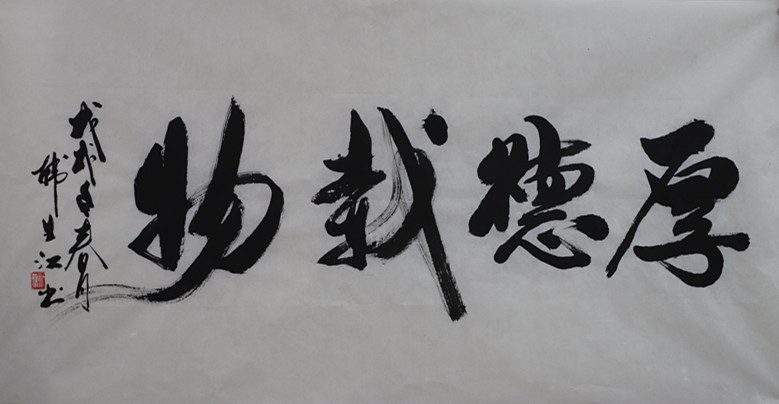 厚德载物
戊戌年春月
韩生江书